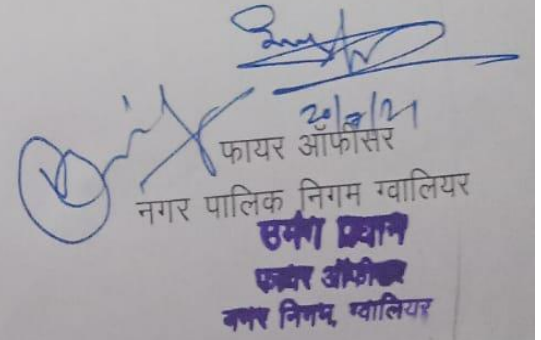 20/8/21
फायर ऑफीसर
नगर पालिक निगम ग्वालियर
उमंग प्रधान
फायर ऑफीसर
नगर निगम, ग्वालियर